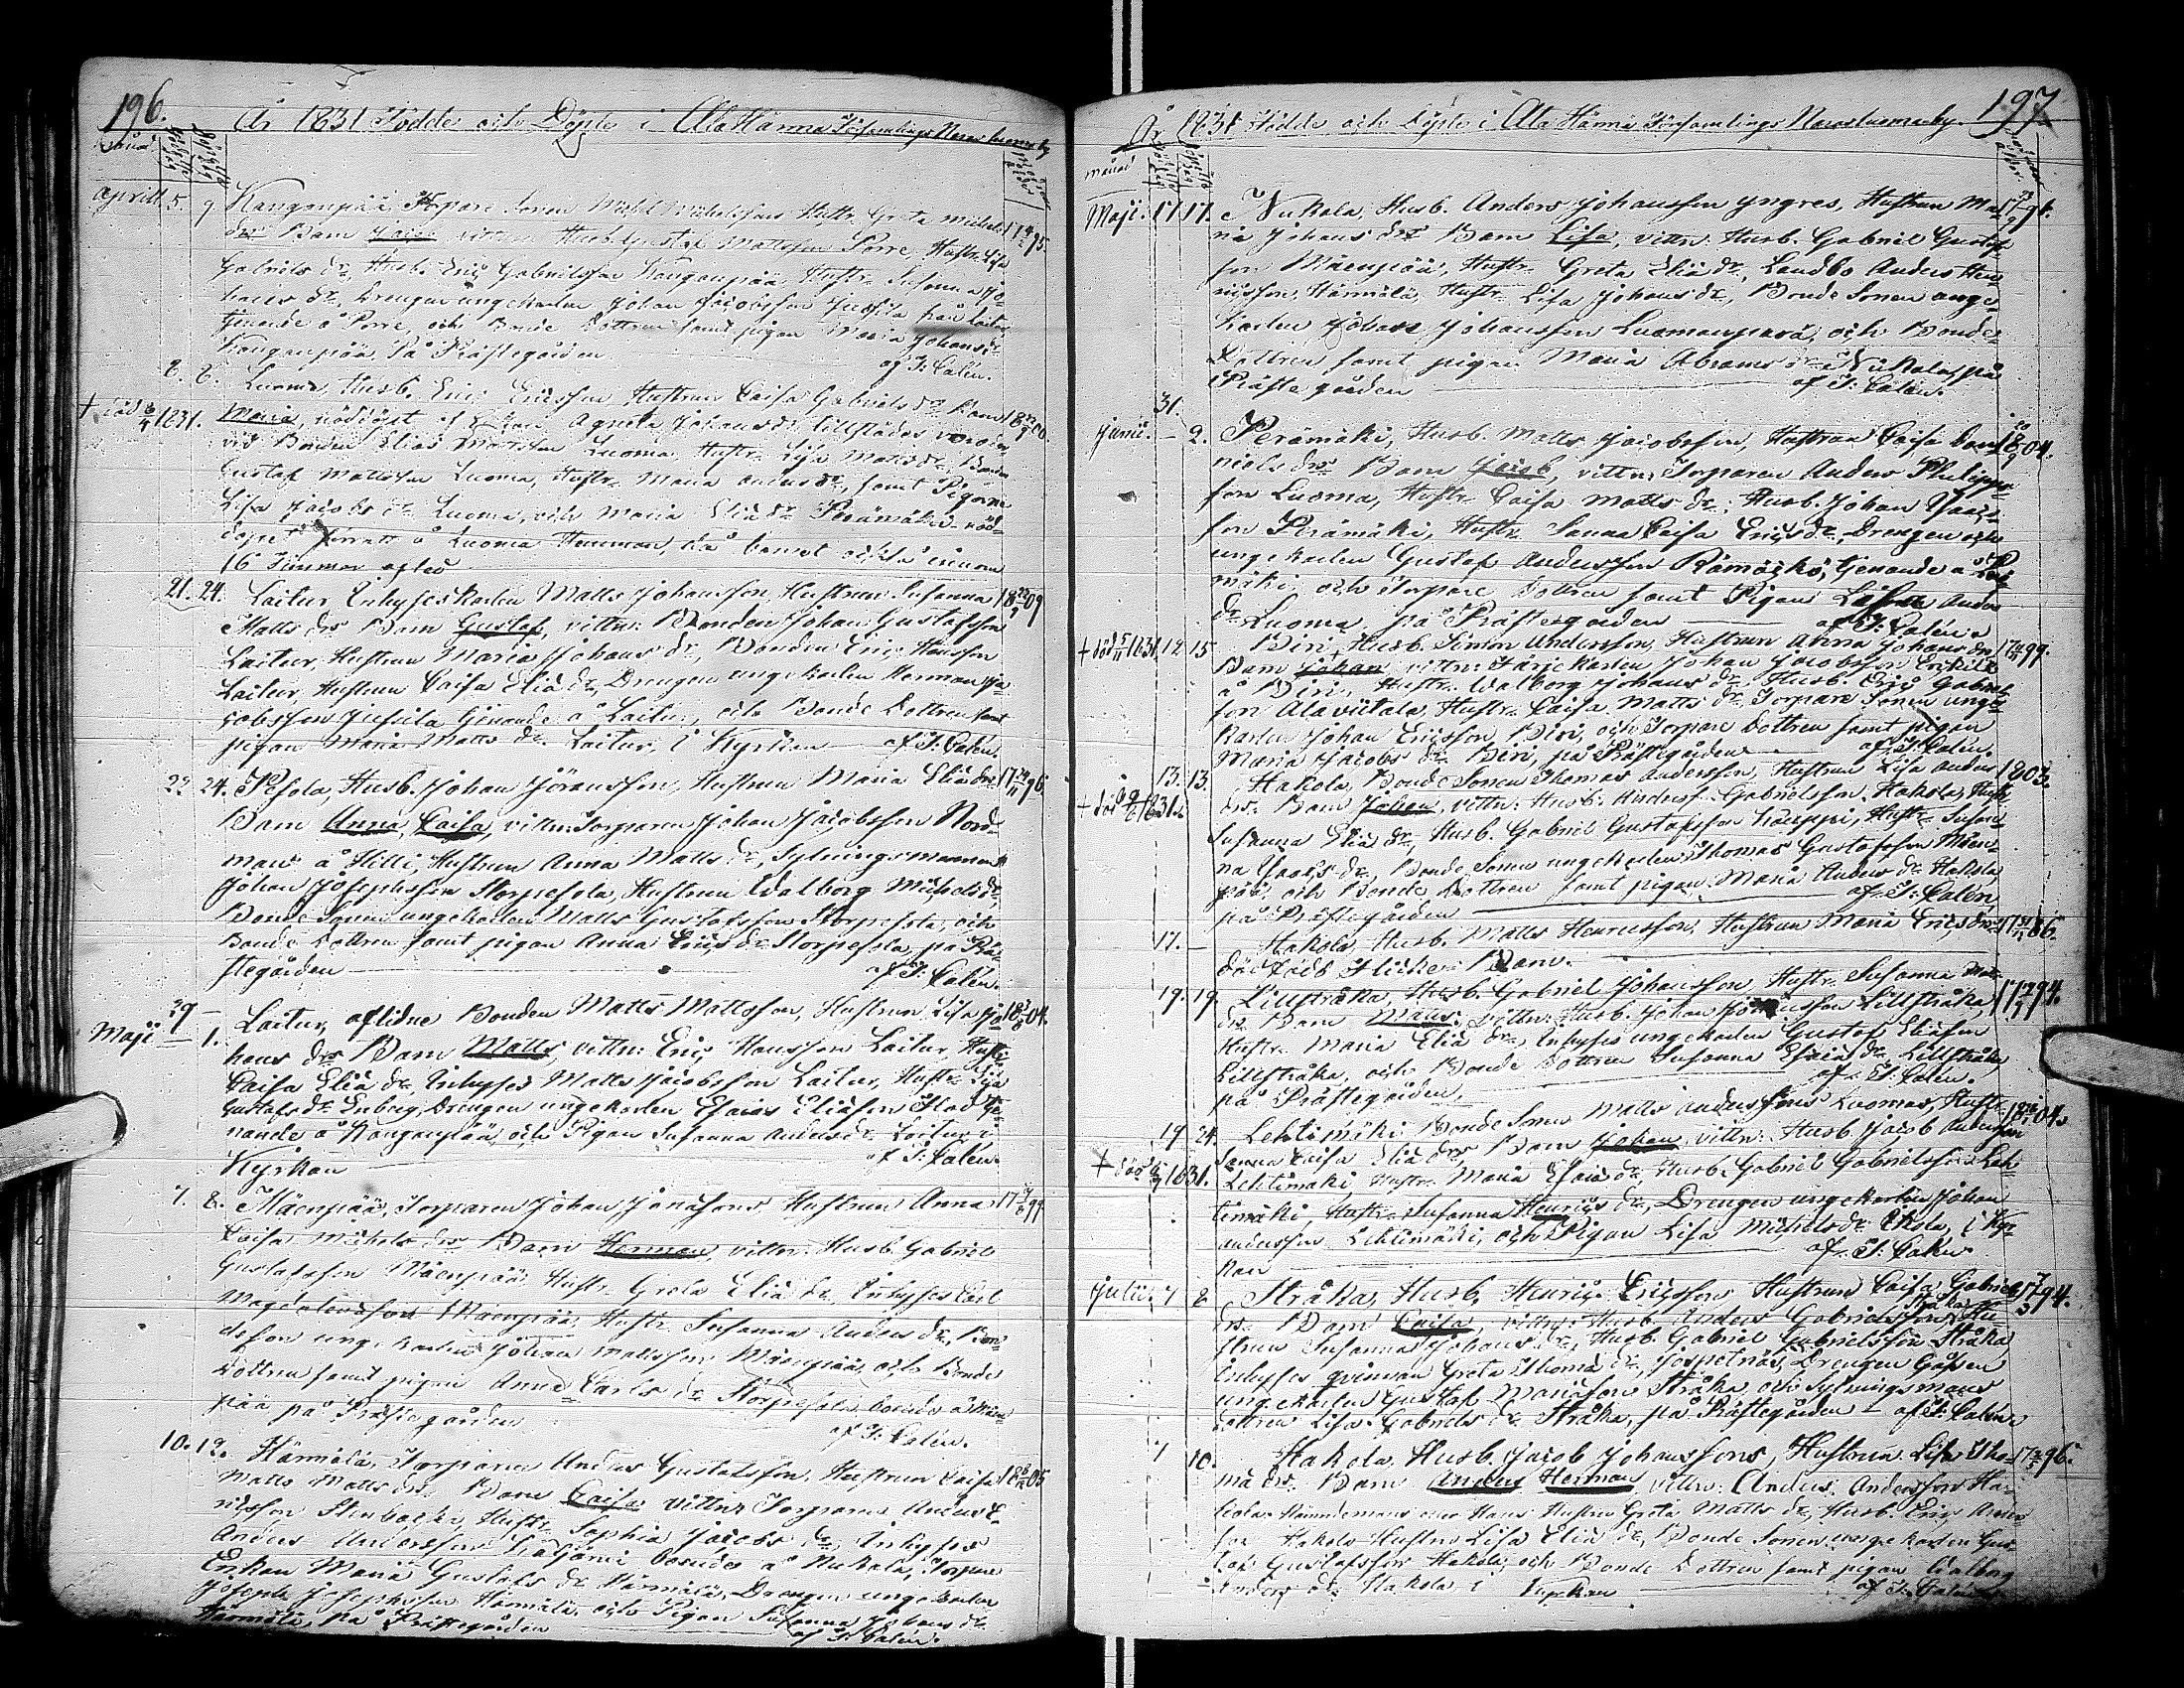 196.
År 1831 Födde och Döpte i Ala Härmä Församlings
Månad
aprill 5. 9 Kanganpää, Torpare Sonen Hustr. Greta Michels 17 95
drs Barn vittn: Husb. Gustaf Mattsson Porre, Hustr. Lisa
Gabriels dr, Husb. Eric Gabrielsson Kanganpää, Hustr. Susanna Jo-
hans dr, Drengen ungekarlen Johan Jacobsson Jussila från Laitur
tjenande å Porre, och Bonde Dottren samt pigan Maria Johans dr
Kanganpää, På Prästegården af J: Calén.
8. 8. Luoma, Husb. Eric Ericsson Hustrun Caisa Gabriels drs Barn 18 00
† död 1831. Maria, nöddöpt af Agneta Johans dr tillstädes voro
Bonden Elias Mattsson Luoma, Hustr. Lisa Matts dr, Bonden
Gustaf Mattsson Luoma, Hustr. Maria Anders dr, samt Pigorne
Lisa Jacobs dr Luoma, och Maria Eliä dr Perämäki. nöd-
dopet förrätt å Luoma Hemman, då barnet också innom
16 Timmar afled
21. 24. Laitur, Inhyseskarlen Matts Johansson, Hustrun Susanna 18 09
Matts drs Barn Gustaf, vittn: Bonden Johan Gustafsson
Laitur, Hustrun Maria Johans dr, Bonden Eric Hansson
Laitur, Hustrun Caisa Eliä dr, Drengen ungekarlen Herman Ja-
cobsson Jussila tjenande å Laitur, och Bonde Dottren samt
pigan Maria Matts dr Laitur, i Kyrkan af J: Calén.
22 24. Pesola, Husb. Johan Jöransson, Hustrun Maria Eliä drs 17 96.
Barn Anna Caisa, vittn: Torparen Johan Jacobsson Nord-
man å Hilli, Hustrun Anna Matts dr, Sytningsmannen
Johan Josephsson Storpesola, Hustrun Walborg Michels dr
Bonde Sonen ungekarlen Matts Gustafsson Storpesola, och
Bonde Dottren samt pigan Anna Erics dr Storpesola, på Prä-
stegården af J: Calén.
29 –
Maji – 1. Laitur, aflidne Bonden Matts Mattsson, Hustrun Lisa Jo- 18 04.
hans drs Barn Matts, vittn: Eric Hansson Laitur, Hustr.
Caisa Eliä dr, Inhyses Matts Jacobsson Laitur, Hustr. Lisa
Gustafs dr Enberg, Drengen ungekarlen Esaias Eliäson tje-
nande å Kanganpää, och Pigan Susanna Anders dr Laitur i
Kyrkan af J: Calén.
7. 8. Mäenpää, Torparen Johan Jonäsons, Hustrun Anna 17 99
Caisa Michels drs Barn Herman, vittn: Husb. Gabriel
Gustafsson Mäenpää, Hustr. Greta Eliä dr, Inhyses Carl
Magdalenäson Mäenpää, Hustr. Susanna Anders dr, Bon-
deson ungekarlen Johan Mattsson Mäenpää, och Bonde
Dottren samt pigan Anna Carls dr Storpesola boende å Mäen-
pää på Prästegården af J: Calén.
10. 12. Härmälä, Torparen Anders Gustafsson, Hustrun Caisa 18 05
Matts Matts drs Barn Caisa vittn: Torparen Anders E-
ricsson Stenbacka, Hustr. Sophia Jacobs dr, Inhyses
Anders Andersson boende å Nukala, Torpare
Enkan Maria Gustafs dr Härmälä, Drengen ungekarlen
Joseph Josephsson Härmälä och Pigan Susanna Johans dr
Härmälä, på Prästegården af J: Calén.
197
År 1831 Födde och Döpte i Ala Härmä Församlings
månad
Maji. 17 17. Nukala, Husb. Anders Johansson yngres, Hustrun Ma- 17 91.
ria Johans drs Barn Lisa, vittn: Husb. Gabriel Gustaf-
son Mäenpää, Hustr. Greta Eliä dr, Landbo Anders Hen-
ricsson Härmälä, Hustr. Lisa Johans dr, Bonde Sonen unge-
karlen Johan Johansson Luomanperä, och Bonde-
Dottren samt pigan Maria Abrams dr Nukala, på
Prästegården af J: Calén.
31.
Junii. – 2. Perämäki, Husb. Matts Jacobsson, Hustrun Caisa Da- 18 04.
niels drs Barn Jacob, vittn: Torparen Anders Philipps-
son Luoma, Hustr. Caisa Matts dr, Husb. Johan Isacs-
son Perämäki, Hustr. Sanna Caisa Erics dr, Drengen och
ungekarlen Gustaf Andersson Rämäckö, tjenande å Perä-
mäki, och Torpare Dottren samt Pigan Anders
dr Luoma, på Prästegården af J: Calén
† död 1831. 12 15. Biri, Husb. Simon Andersson, Hustrun Anna Johans drs 17 99.
Barn Johan vittn: Färjekarlen Johan Jacobsson
å Biri, Hustr. Walborg Johans dr, Husb. Eric Gabriels-
son Alaviitala, Hustr. Caisa Matts dr, Torpare Sonen unge-
karlen Johan Ericsson Biri, och Torpare Dottren samt pigan
Maria Jacobs dr Biri, på Prästegården af J: Calén.
13. 13. Hakola, Bonde Sonen Thomas Andersson, Hustrun Lisa Anders 1803.
† död 1831. drs Barn Johan, vittn: Husb. Anders Gabrielsson Hakola, Hustr.
Susanna Eliä dr, Husb. Gabriel Gustafsson Kauppi, Hustr. Susan-
na Isacs dr, Bonde Sonen ungekarlen Thomas Gustafsson Mäen-
pää, och Bonde Dottren samt pigan Maria Anders dr Hakola
på Prästegården af J: Calén
17. – Hakola, Husb. Matts Henricsson, Hustrun Maria Erics drs 17 86.
dödfödt Flicke Barn.
19. 19. Lillstråka, Husb. Gabriel Johansson, Hustr. Susanna 17 94.
drs Barn Matts, vittn: Husb. Johan Lillstråka,
Hustr. Maria Eliä dr, Inhyses ungekarlen Gustaf Eliäson
Lillstråka, och Bonde Dottren Susanna Esaiä dr Lillstråka
på Prästegården, af J: Calén.
19 24. Lehtimäki Bonde Sonen Matts Anderssons Luomas, Hustr. 18 04.
Sanna Caisa Eliä drs Barn Johan, vittn: Husb. Jacob Andersson
† död 1831. Lehtimäki Hustr. Maria Esaiä dr, Husb. Gabriel Gabrielsson Leh-
timäki, Hustr. Susanna Henrics dr, Drengen ungekarlen Johan
Andersson Lehtimäki, och Pigan Lisa Michels dr Ekola, i Kyr-
kan af J: Calén.
Julii. 7 8 Stråka, Husb. Henric Ericsson Hustrun Caisa Gabriels 17 94.
drs Barn Caisa, vittn: Husb. Anders Gabrielsson Stråka, Hu-
strun Susanna Johans dr, Husb. Gabriel Gabrielsson Stråka
Inhyses qvinnan Greta Thomä dr, Drengen
ungekarlen Gustaf Mariäson Stråka, och Sytningsmans
dottren Lisa Gabriels dr Stråka, på Prästegården – af J: Calén.
7 10. Hakola, Husb. Jacob Johanssons, Hustrun Lisa Tho- 17 96.
mä drs Barn Anders Herman, vittn: Anders Andersson Ha-
kola Nämndeman och Hans Hustru Greta Matts dr, Husb. Eric Anders-
son Hakola Hustru Lisa Eliä dr, Bonde Sonen ungekarlen Gus-
taf Gustafsson Hakola, och Bonde Dottren samt pigan Walborg
Anders dr Hakola i Kyrkan af J: Calén